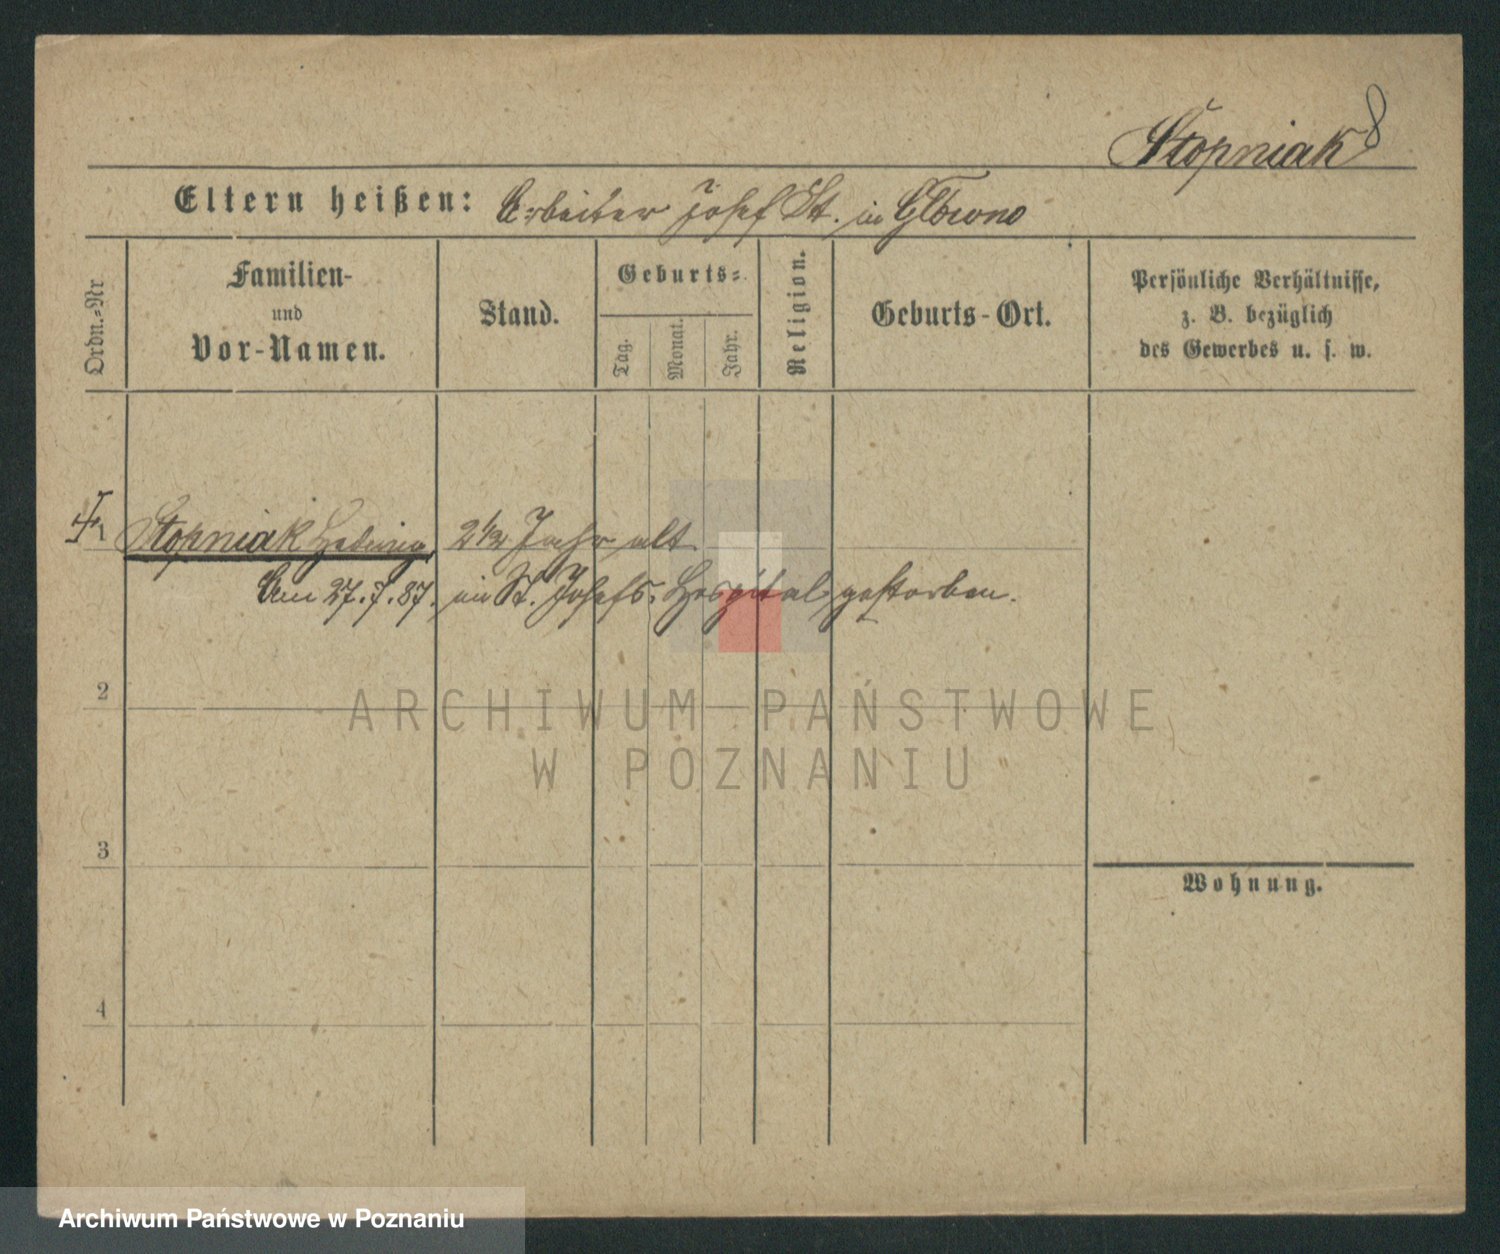 Stopniak 8
Eltern heißen: Arbeiter Josef St. in Glowno
Ordn.=Nr
Familien-
und
Vor-Namen.
Stand.
Geburts=
Tag.
Monat.
Jahr.
Religion.
Geburts-Ort.
Persönliche Verhältnisse,
z. B. bezüglich
des Gewerbes u. s. w.
1 Stopniak Hedwig 2 1/2 Jahr alt
Am 27.7.87. im St. Josefs. Hospital gestorben.
2
3
Wohnung.
4
ARCHIWUM PAŃSTWOWE
W POZNANIU
Archiwum Państwowe w Poznaniu